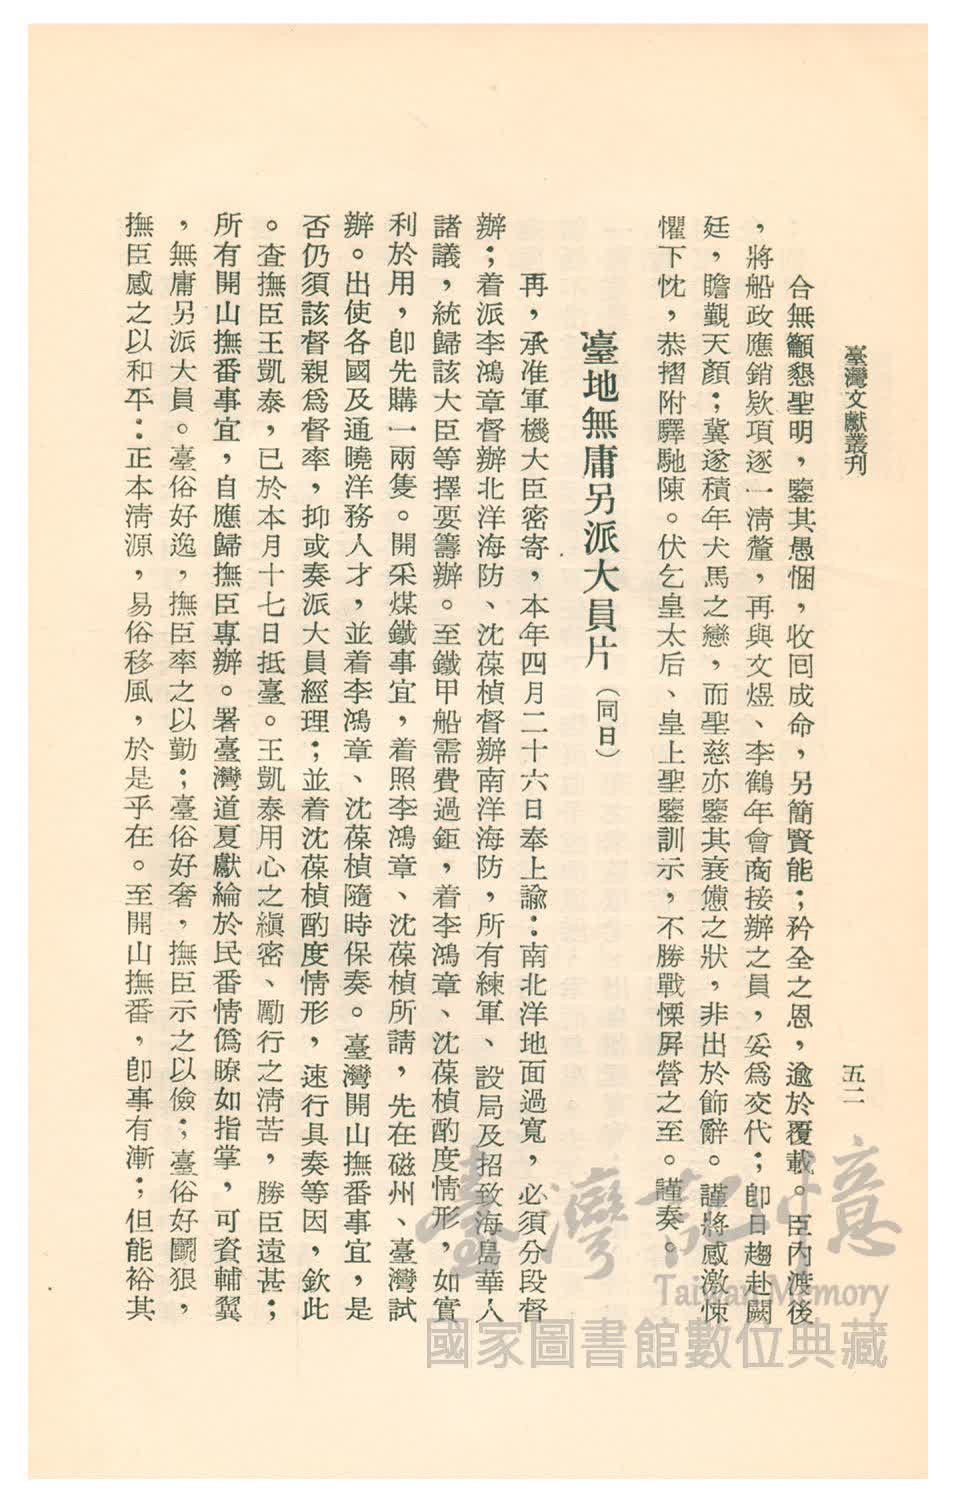 臺灣文獻叢刊
五二
合無籲懇聖明，鑒其愚悃，收回成命，另簡賢能；矜全之恩，逾於覆載。臣內渡後
，將船政應銷欵項逐一清釐，再與文煜、李鶴年會商接辦之員，妥爲交代；卽日趨赴闕
廷，瞻觀天顏；冀遂積年犬馬之戀，而聖慈亦鑒其衰憊之狀，非出於飾辭。謹將感激悚
懼下忱，恭摺附驛馳陳。伏乞皇太后、皇上聖鑒訓示，不勝戰慄屏營之至。謹奏。
臺地無庸另派大員片（同日）
再，承准軍機大臣密寄，本年四月二十六日奉上諭：南北洋地面過寬，必須分段督
辦；着派李鴻章督辦北洋海防、沈葆楨督辦南洋海防，所有練軍、設局及招致海島華人
諸議，統歸該大臣等擇要籌辦。至鐵甲船需費過鉅，着李鴻章、沈葆楨酌度情形，如實
利於用，卽先購一兩隻。開采煤鐵事宜，着照李鴻章、沈葆楨所請，先在磁州、臺灣試
辦。出使各國及通曉洋務人才，並着李鴻章、沈葆楨隨時保奏。臺灣開山撫番事宜，是
否仍須該督親爲督率，抑或奏派大員經理；並着沈葆楨酌度情形，速行具奏等因，欽此
。查撫臣王凱泰，已於本月十七日抵臺。王凱泰用心之縝密、勵行之清苦，勝臣遠甚；
所有開山撫番事宜，自應歸撫臣專辦。署臺灣道夏獻綸於民番情僞瞭如指掌，可資輔翼
，無庸另派大員。臺俗好逸，撫臣率之以勤；臺俗好奢，撫臣示之以儉；臺俗好鬭狠，
撫臣感之以和平：正本清源，易俗移風，於是乎在。至開山撫番，卽事有漸；但能裕其
臺灣記憶
Taiwan Memory
國家圖書館數位典藏